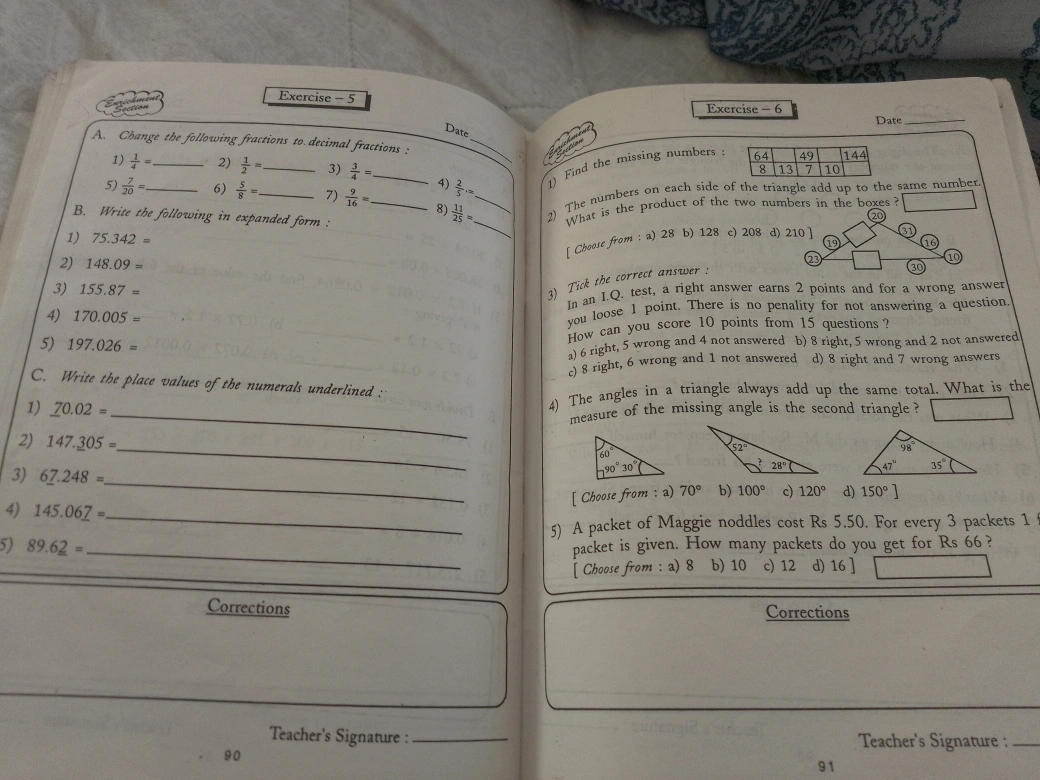 Enrichment Section
Exercise – 5
Date
A. Change the following fractions to decimal fractions :
1) 1/4 = 2) 1/2 = 3) 3/4 = 4) 2/5 =
5) 7/20 = 6) 5/8 = 7) 9/16 = 8) 11/25 =
B. Write the following in expanded form :
1) 75.342 =
2) 148.09 =
3) 155.87 =
4) 170.005 =
5) 197.026 =
C. Write the place values of the numerals underlined :
1) 70.02 =
2) 147.305 =
3) 67.248 =
4) 145.067 =
5) 89.62 =
Corrections
Teacher's Signature :
90
Enrichment Section
Exercise – 6
Date
1) Find the missing numbers :
64 49 144
8 13 7 10
2) The numbers on each side of the triangle add up to the same number.
What is the product of the two numbers in the boxes ?
[ Choose from : a) 28 b) 128 c) 208 d) 210 ]
20
31
19
16
23
10
30
3) Tick the correct answer :
In an I.Q. test, a right answer earns 2 points and for a wrong answer
you loose 1 point. There is no penality for not answering a question.
How can you score 10 points from 15 questions ?
a) 6 right, 5 wrong and 4 not answered b) 8 right, 5 wrong and 2 not answered
c) 8 right, 6 wrong and 1 not answered d) 8 right and 7 wrong answers
4) The angles in a triangle always add up the same total. What is the
measure of the missing angle is the second triangle ?
60°
90° 30°
52°
? 28°
98°
47° 35°
[ Choose from : a) 70° b) 100° c) 120° d) 150° ]
5) A packet of Maggie noddles cost Rs 5.50. For every 3 packets 1 f
packet is given. How many packets do you get for Rs 66 ?
[ Choose from : a) 8 b) 10 c) 12 d) 16 ]
Corrections
Teacher's Signature :
91